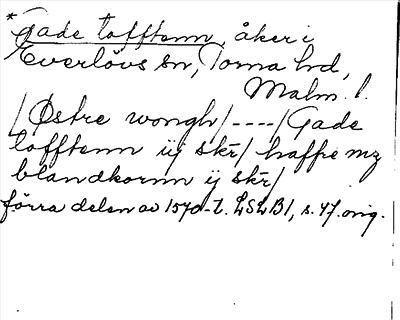 *Gade tofftenn, åker i
Everlövs sn, Torna hd,
Malm. l.
/Østre wongh/----/Gade
tofftenn iij skr/ haffre mz
blandkornn ij skr/
förra delen av 1570-t. LSLB1, s. 47. orig.